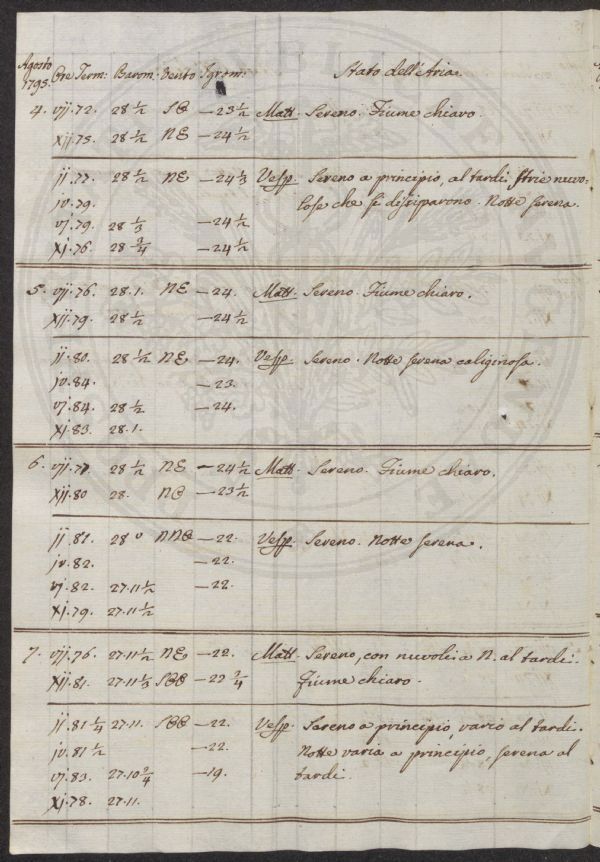 Agosto
1795. Ore Term: Barom: Vento Igrom: Stato dell'Aria.
4. vij. 72. 28 1/2 SE —23 1/2 Matt. Sereno. Fiume chiaro.
xij. 75. 28 1/2 NE —24 1/2
ij. 77. 28 1/2 NE —24 1/3 Vesp. Sereno a principio, al tardi strie nuvo-
iv. 79. lose che si dissiparono. Notte serena.
vj. 79. 28 1/3 —24 1/2
xj. 76. 28 3/4 —24 1/2
5. vij. 76. 28. 1. NE —24. Matt. Sereno. Fiume chiaro.
xij. 79. 28 1/2 —24 1/2
ij. 80. 28 1/2 NE —24. Vesp. Sereno. Notte serena caliginosa.
iv. 84. —23.
vj. 84. 28 1/2 —24.
xj. 83. 28. 1.
6. vij. 77. 28 1/2 NE —24 1/2 Matt. Sereno. Fiume chiaro.
xij. 80 28. NE —23 1/2
ij. 81. 28 0 NNE —22. Vesp. Sereno. Notte serena.
iv. 82. —22.
vj. 82. 27. 11 1/2 —22.
xj. 79. 27. 11 1/2
7. vij. 76. 27. 11 1/2 NE —22. Matt. Sereno, con nuvoli a N. al tardi.
xij. 81. 27. 11 1/3 SEE —22 3/4 Fiume chiaro.
ij. 81 1/4 27. 11. SEE —22. Vesp. Sereno a principio, vario al tardi.
iv. 81 1/2 —22. Notte varia a principio, serena al
vj. 83. 27. 10 3/4 —19. tardi.
xj. 78. 27. 11.